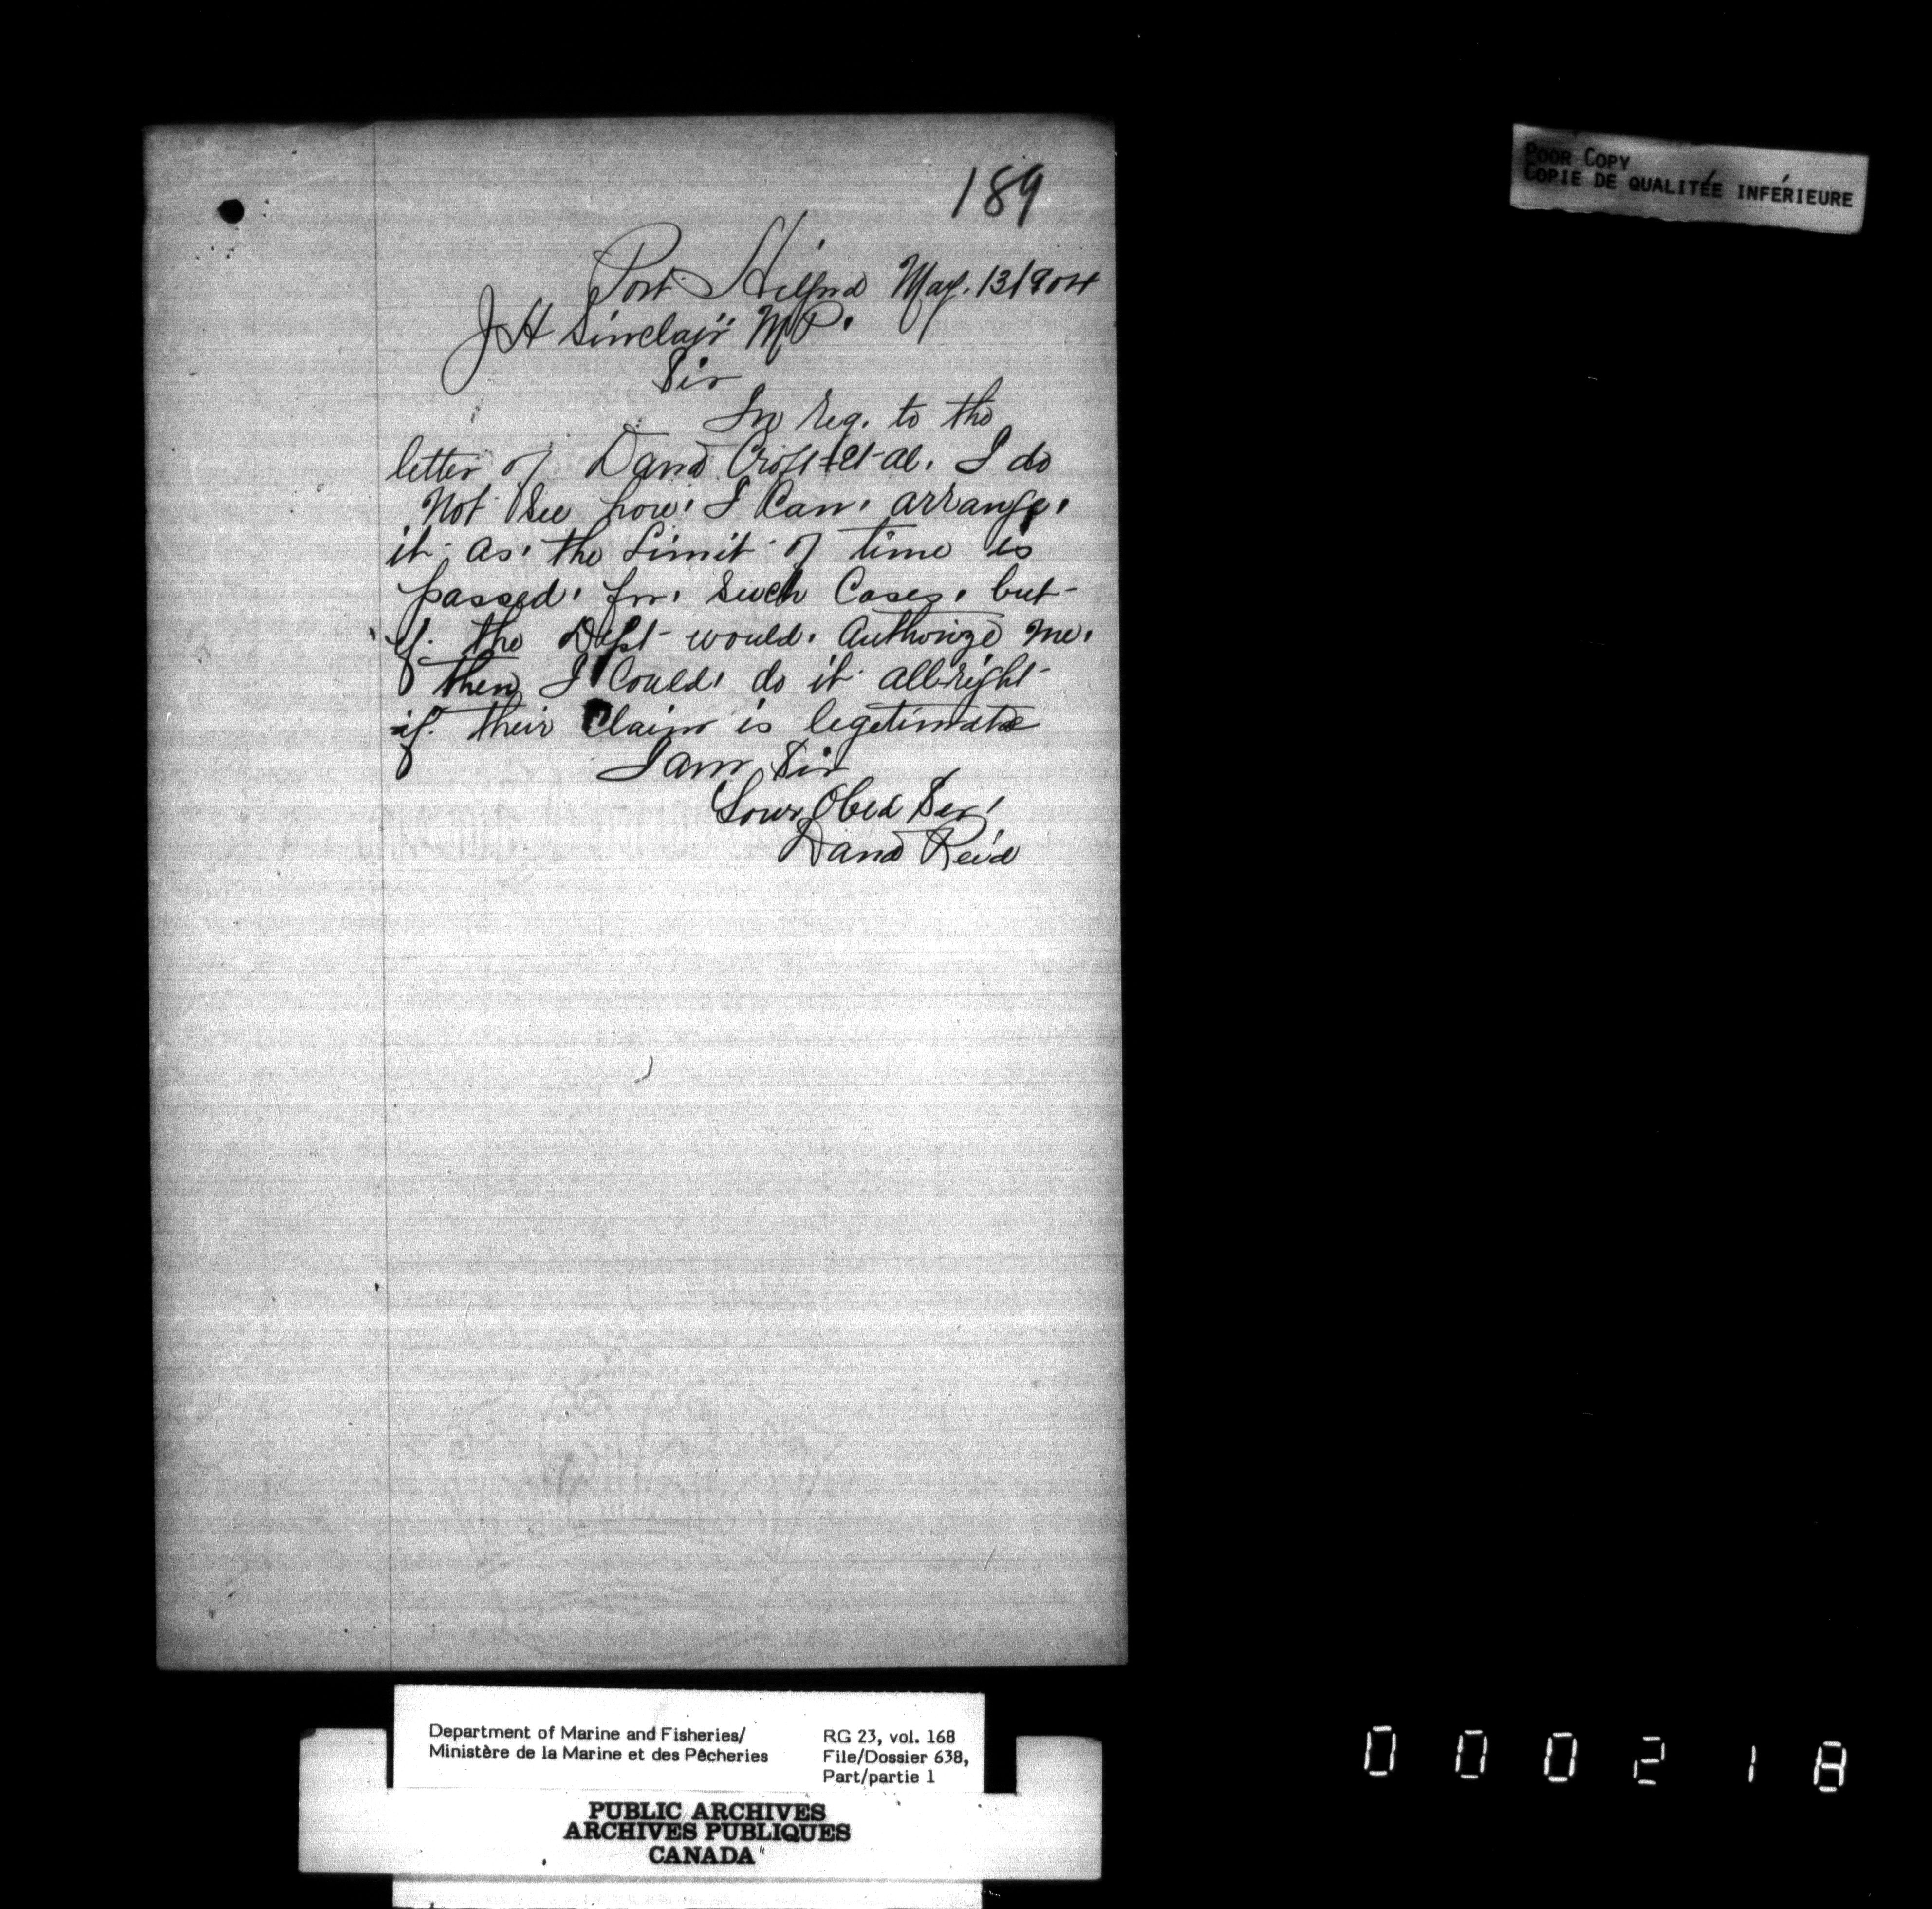 189
Port Hilford May. 13 1904
J H Sinclair M P.
Sir
In reg. to the
letter of David Croft et al. I do
Not See how I Can arrange
it as the Limit of time is
passed for Such Cases, but
if the Dept would Authorize me
then I Could do it all right
if their Claim is legetimate
I am Sir
Your Obed Ser
David Reid
POOR COPY
COPIE DE QUALITÉE INFÉRIEURE
Department of Marine and Fisheries/ RG 23, vol. 168
Ministère de la Marine et des Pêcheries File/Dossier 638,
Part/partie 1
PUBLIC ARCHIVES
ARCHIVES PUBLIQUES
CANADA
000218